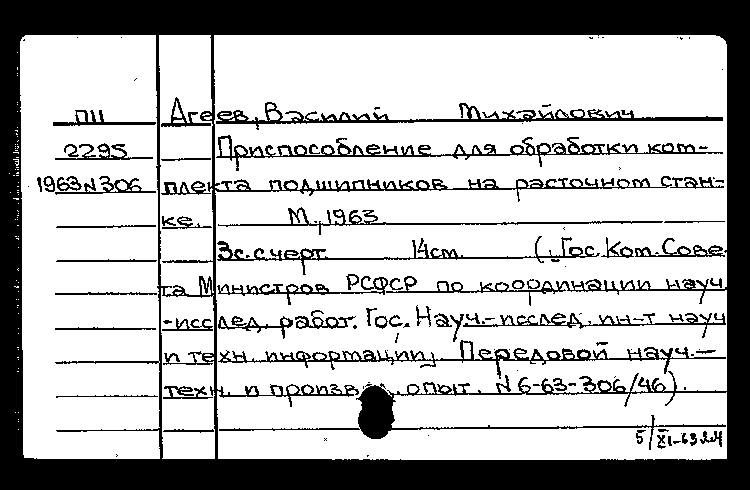 П11 Агеев, Василий Михайлович
2295 Приспособление для обработки ком-
1963 N 306 плекта подшипников на расточном стан-
ке. М., 1963
3с. с черт. 14см. (Гос. Ком. Сове-
та Министров РСФСР по координации науч
-исслед. работ. Гос. Науч.-исслед. ин-т науч
и техн. информации). Передовой науч.—
техн. и произв. опыт. N 6-63-306/46).
5/XI-63